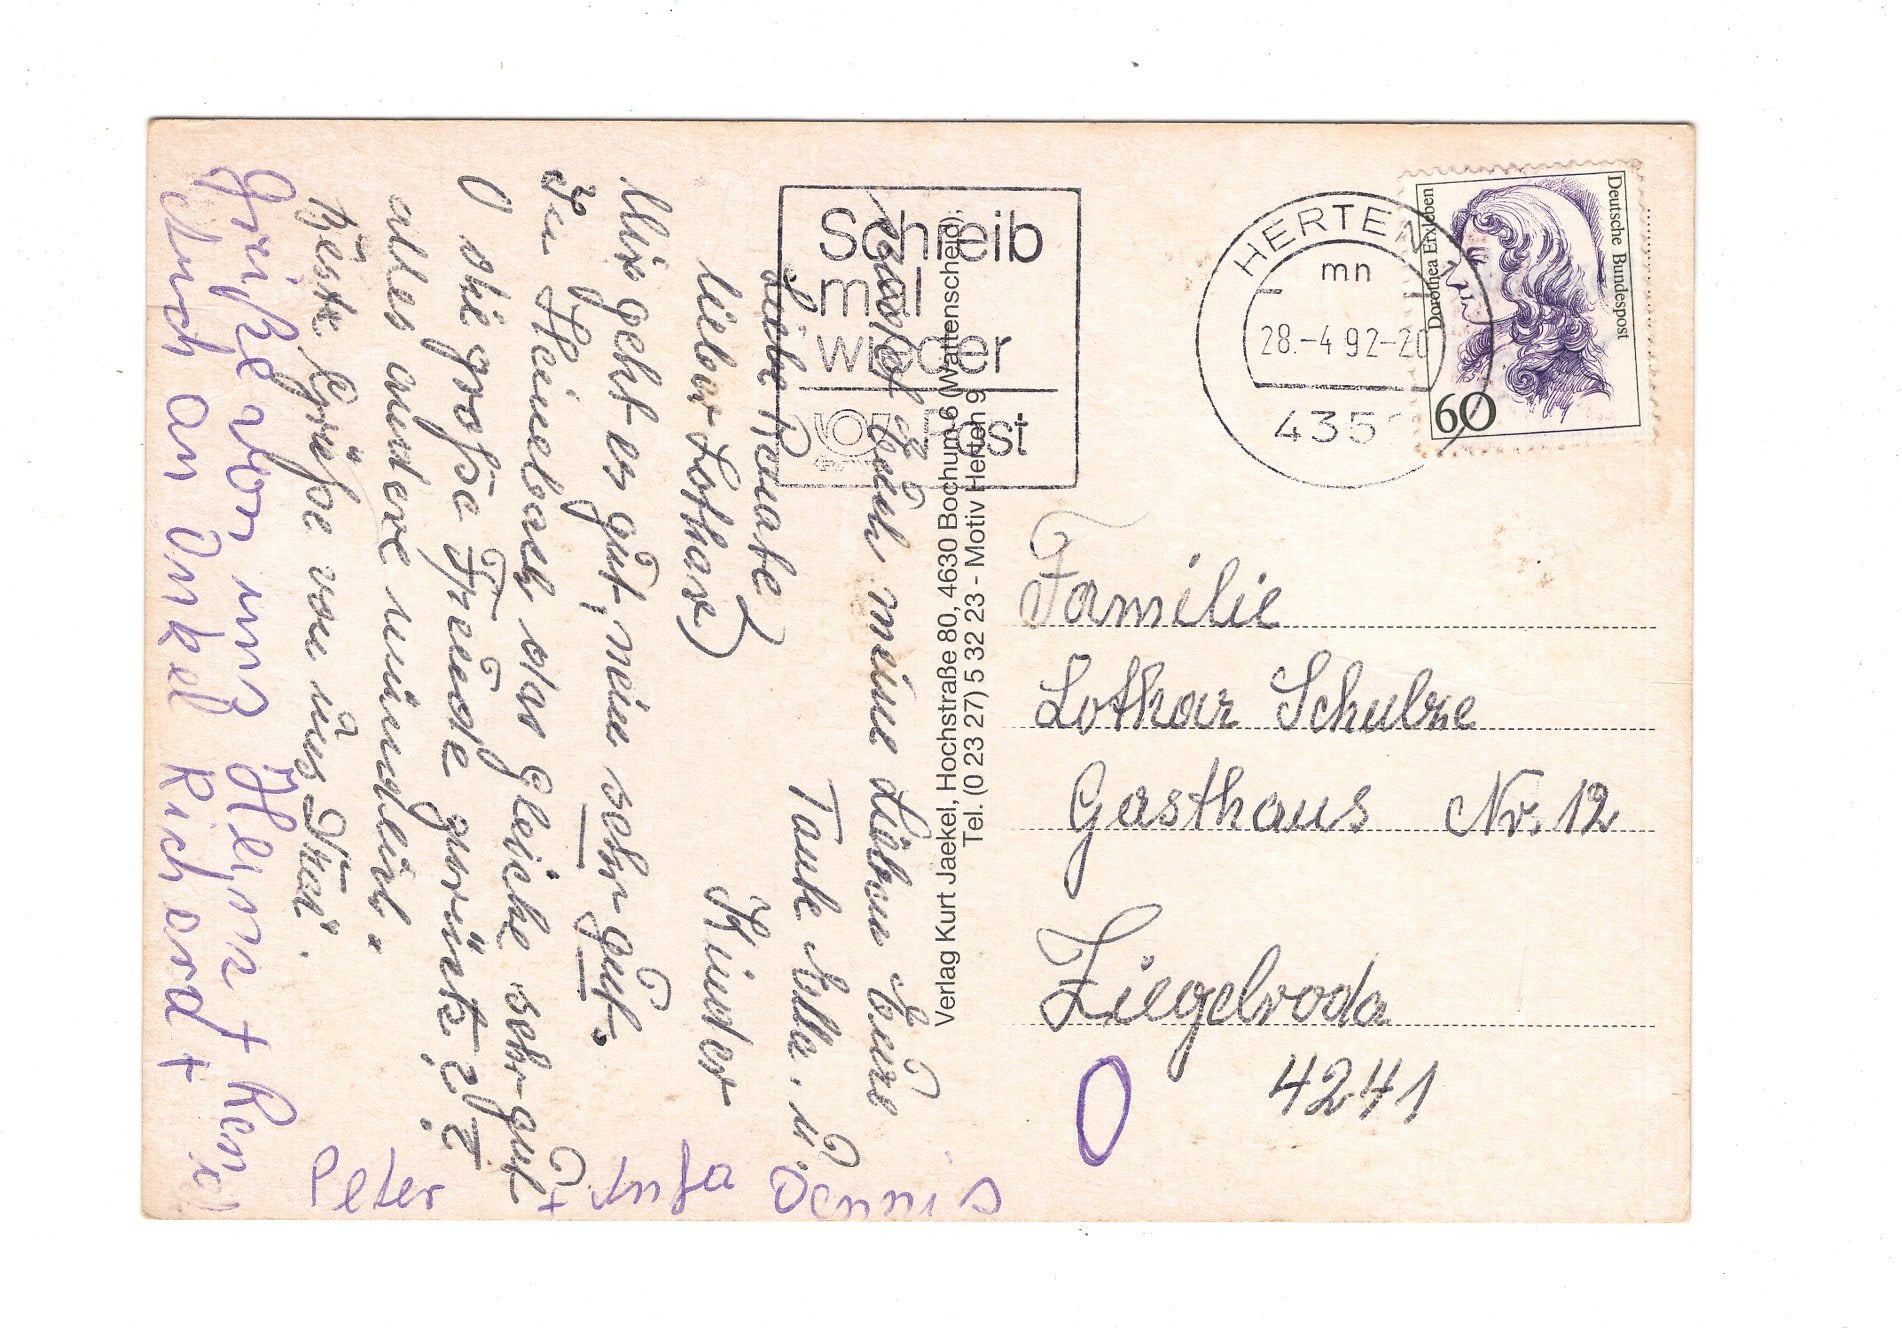 Schreib
mal
wieder
Post
HERTEN
mn
28.-4.92-20
435
Deutsche Bundespost
Dorothea Erxleben
60
Liebe Renate,
lieber Lothar,
Mir geht es gut, nein sehr gut.
In Heinelbach das gleiche sehr gut
O die große Freude
alles andere mündlich.
Beste Grüße von uns
Grüße von uns Helga + Renè
Auch an Onkel Richard +
Tante Ella. u.
Kinder
Euch meine Lieben Eure
Peter + Anja Dennis
Verlag Kurt Jaekel, Hochstraße 80, 4630 Bochum 6 (Wattenscheid),
Tel. (0 23 27) 5 32 23 - Motiv Herten 9
Familie
Lothar Schulze
Gasthaus Nr. 12
Ziegelroda
4241